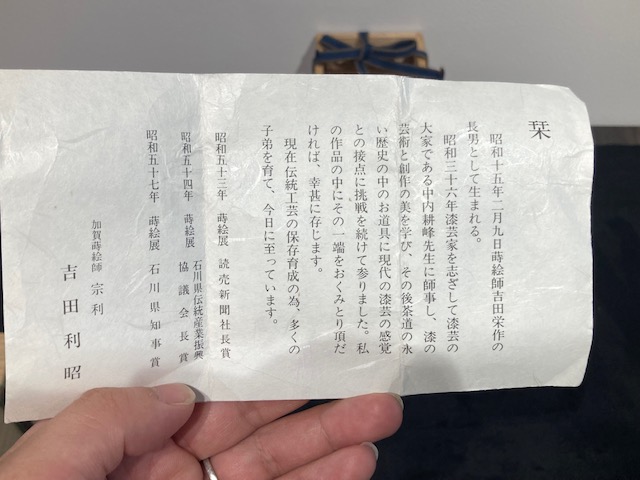 栞
昭和十五年二月九日蒔絵師吉田栄作の
長男として生まれる。
昭和三十六年漆芸家を志ざして漆芸の
大家である中内耕峰先生に師事し、漆の
芸術と創作の美を学び、その後茶道の永
い歴史の中のお道具に現代の漆芸の感覚
との接点に挑戦を続けて参りました。私
の作品の中にその一端をおくみとり頂だ
ければ、幸甚に存じます。
現在伝統工芸の保存育成の為、多くの
子弟を育て、今日に至っています。
昭和五十三年 蒔絵展 読売新聞社長賞
昭和五十四年 蒔絵展 石川県伝統産業振興
協議会長賞
昭和五十七年 蒔絵展 石川県知事賞
加賀蒔絵師 宗利
吉田利昭